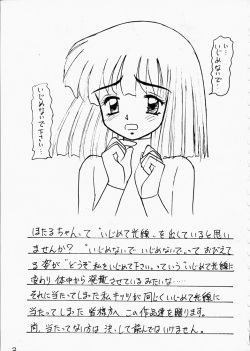 い…
いじめないで…
いじめないで下さい…
ほたるちゃんって"いじめて光線"を出していると思い
ませんか?"いじめないで いじめないで"っておびえて
る姿が"どうぞ私をいじめて下さい"っていういじめて光線に
変わり体中から発散させているみたいな……
それに当たってしまった私 キッツが同じくいじめて光線に
当たってしまった皆様方へこの作品達を贈ります。
尚、当たってない方は決して読んではいけません。
3